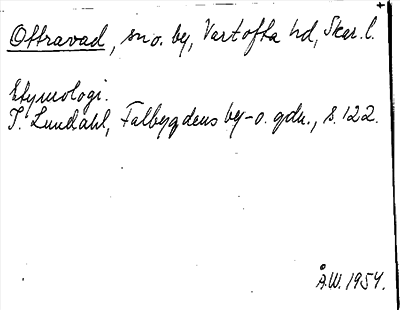 Ottravad, sno. by, Vartofta hd, Skar. l.
Etymologi.
I. Lundahl, Falbygdens by- o. gdn., s. 122.
Å.W. 1954.